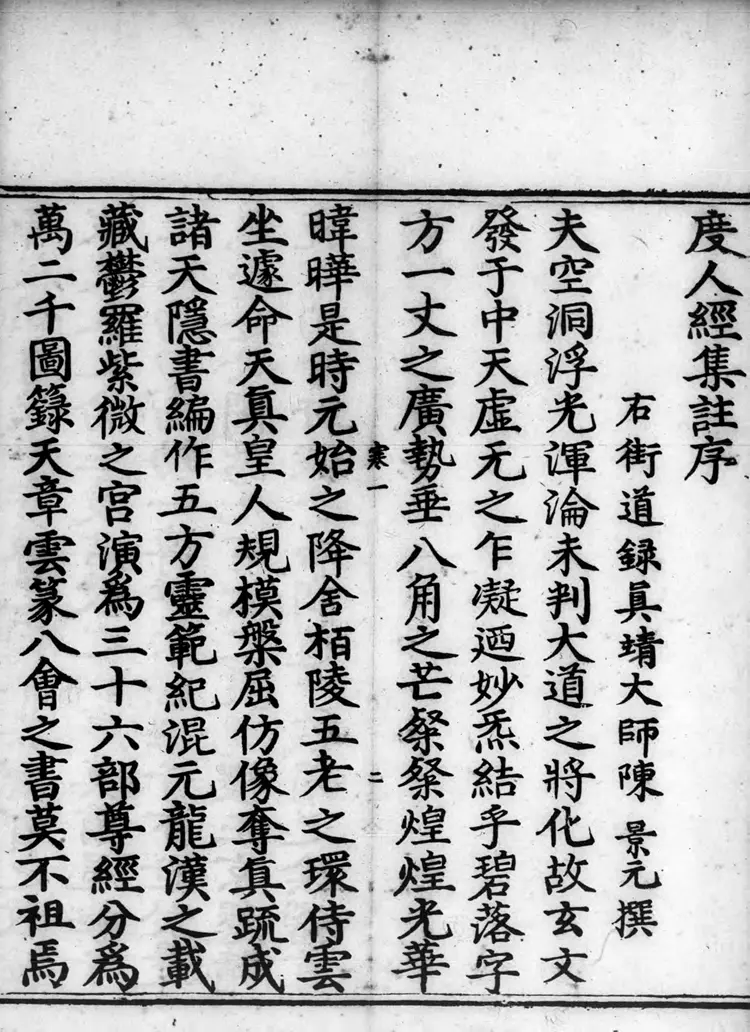 度人經集註序
右街道録真靖大師陳景元撰
夫空洞浮光渾淪未判大道之將化故玄文
發于中天虛无之乍凝迺妙炁結乎碧落字
方一丈之廣勢垂八角之芒粲粲煌煌光華
暐曄是時元始之降舍栢陵五老之環侍雲
寒一
二
坐遽命天真皇人規模槃屈仿像奪真疏成
諸天隱書編作五方靈範紀混元龍漢之載
藏鬱羅紫微之宮演為三十六部尊經分為
萬二千圖籙天章雲篆八會之書莫不祖焉